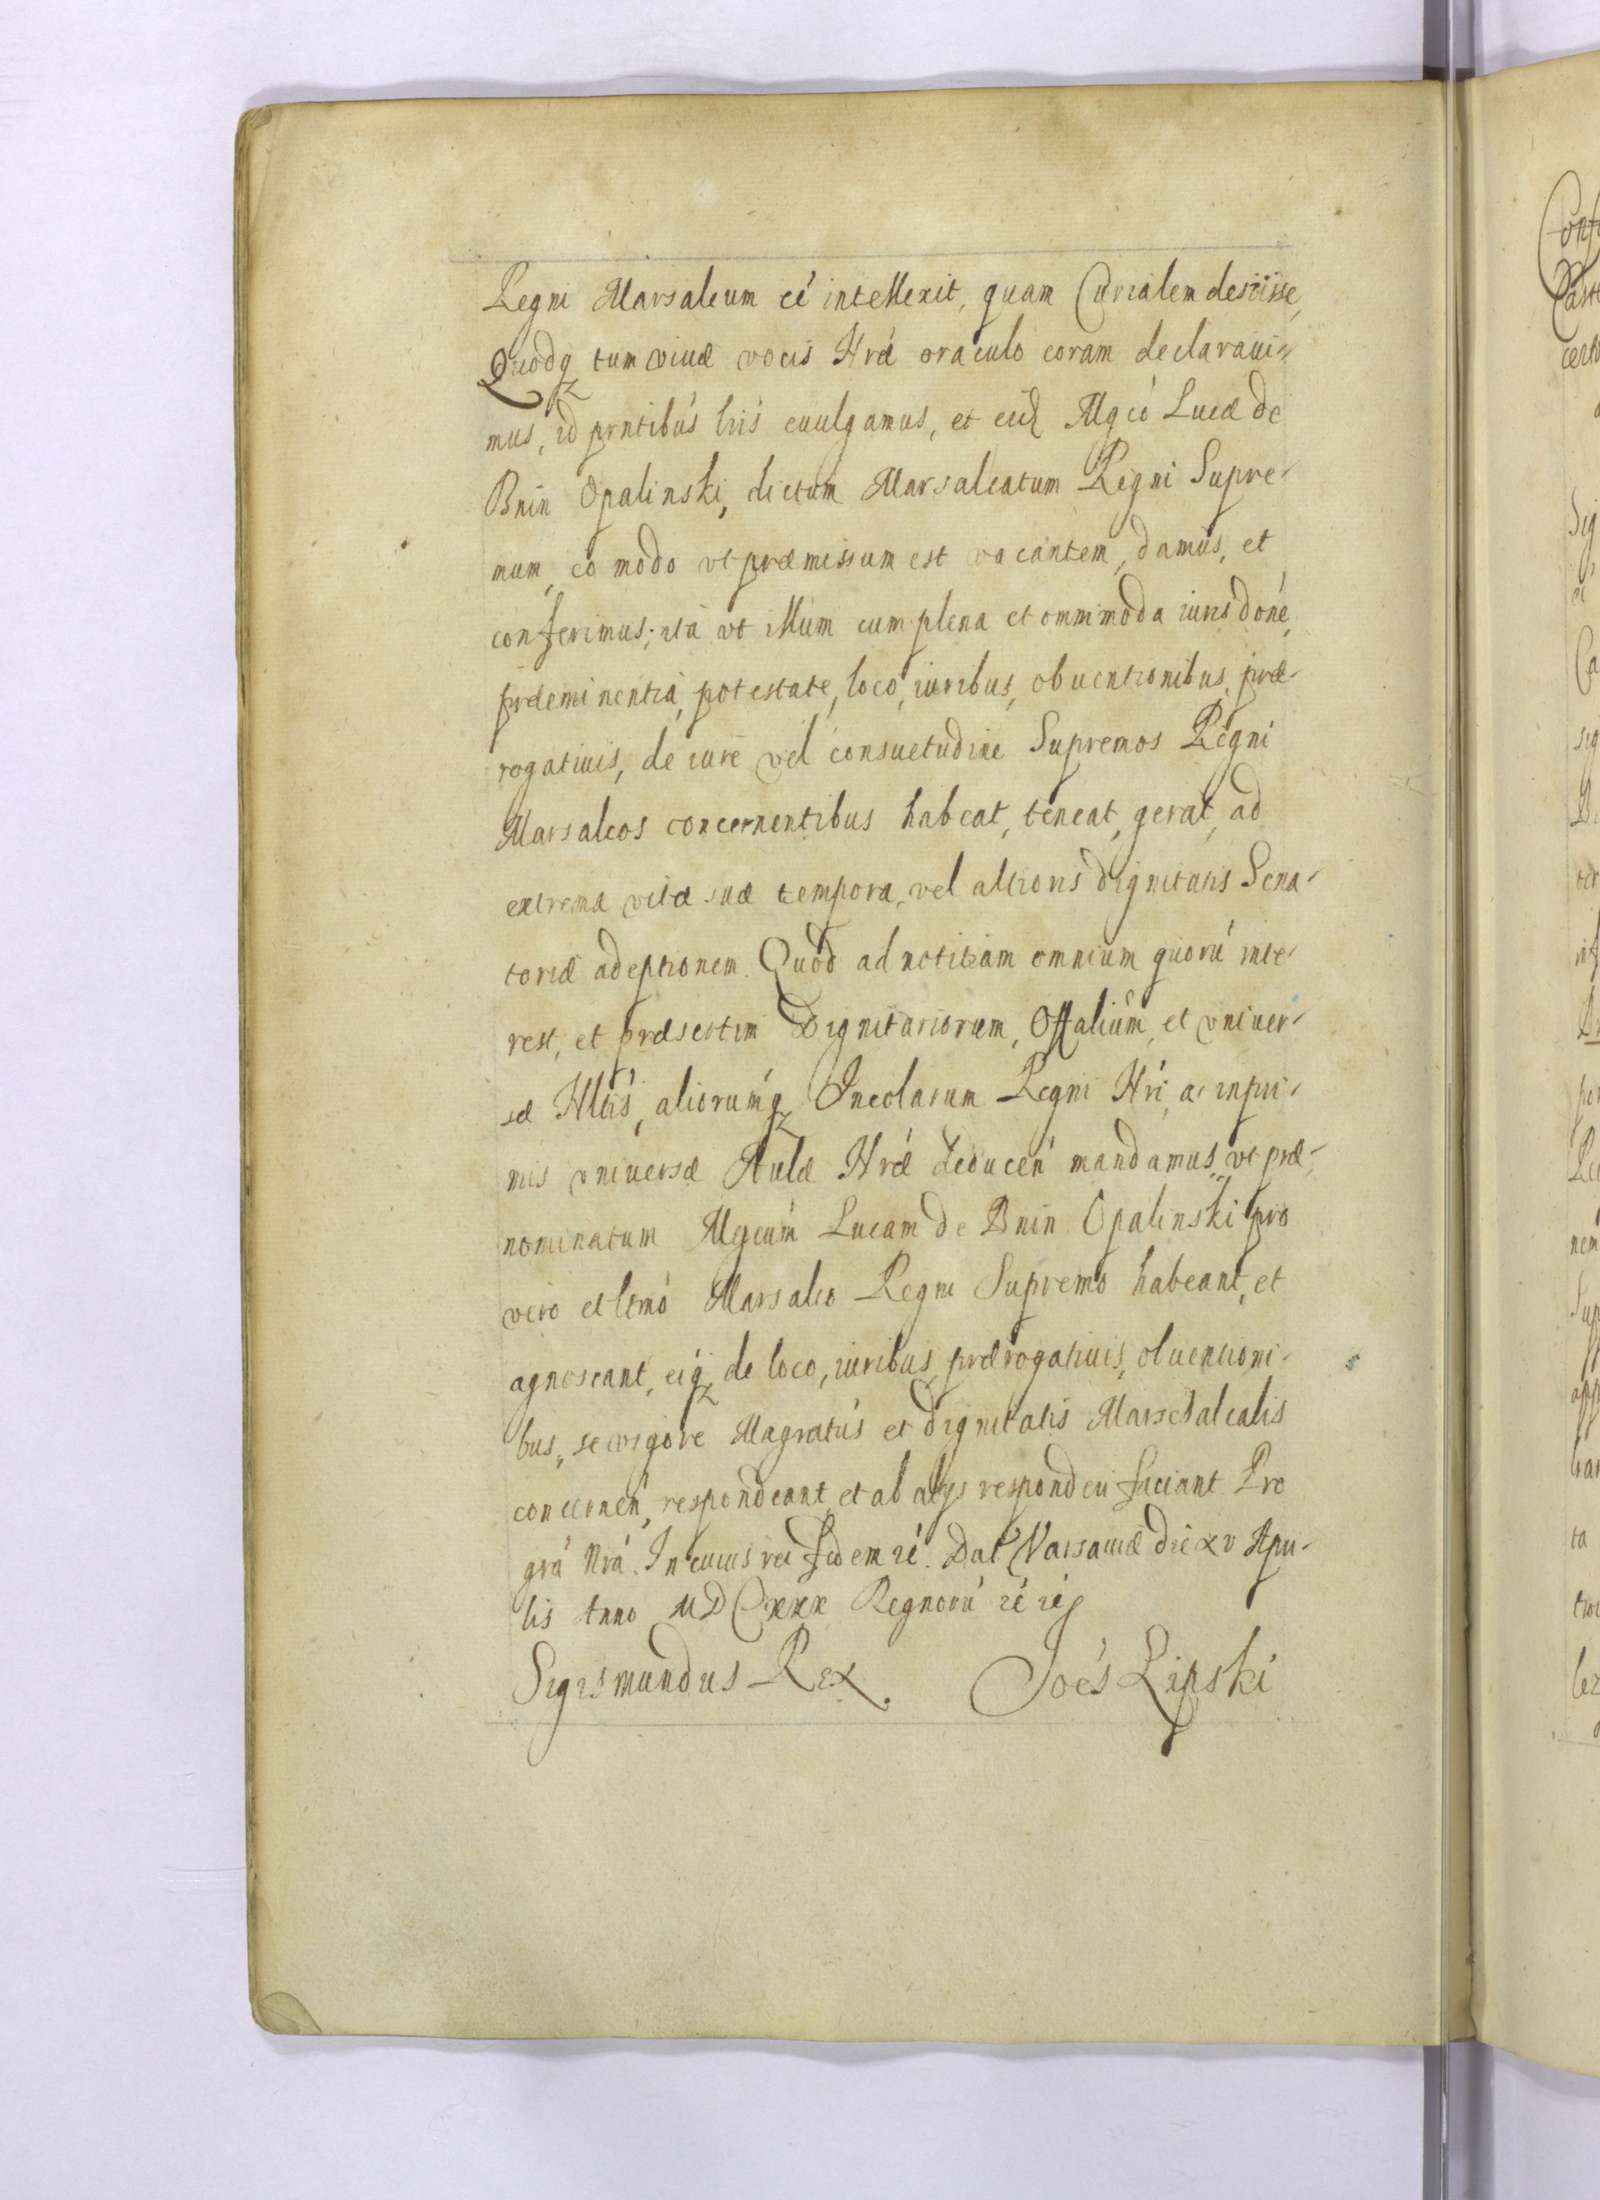 Regni Marsalcum eé intellexit, quam Curialem desiisse,
Quodq tum viuæ vocis Nræ oraculo coram declaraui-
mus, id pntibús lris euulgamus, et eid Mgco Lucæ de
Bnin Opalinski, dictum Marsalcatum Regni Supre-
mum, eo modo vt præmissum est vacántem, damus, et
conferimus; ita vt illum cum plena et omnimoda iurisdoné,
præeminentia, potestate, loco, iuribus, obuentionibus, præ-
rogatiuis, de iure vel consuetudine Supremos Regni
Marsalcos concernentibus habeat, teneat, gerat, ad
extrema vitæ suæ tempora, vel altioris dignitatis Sena-
toriæ adeptionem. Quod ad notitiam omnium quorú inte-
rest, et præsertim Dignitariorum, Offalium, et vniuer-
sæ Nltis, aliorumq Incolarum Regni Nri, ac inpri-
mis vniuersæ Aulæ Nræ deducen mandamus, vt præ-
nominatum Mgcum Lucam de Bnin Opalinski pro
vero et ltmo Marsalco Regni Supremo habeant, et
agnoscant, eiq de loco, iuribus, prærogatiuis, obuentioni-
bus, se vigore Magratus et dignitatis Marschalcalis
concernen, respondeant, et ab alys responderi faciant. Pro
gra Nra. In cuius rei fidem ré. Dat Varsauiæ die xv Apri-
lis Anno MDCxxx Regnorú ré ré
Sigismundus Rex. Joés Lipski